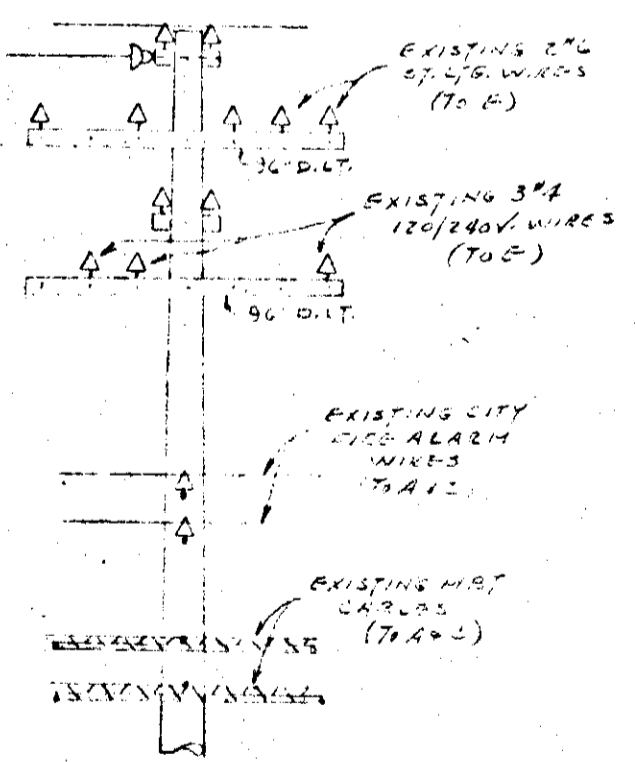 EXISTING 2#6
ST. LTG. WIRES
(TO E)
96" D.LT.
EXISTING 3#4
120/240V. WIRES
(TO E)
96" D.LT.
EXISTING CITY
FIRE ALARM
WIRES
(TO A &
EXISTING MBT
CABLES
(TO A &